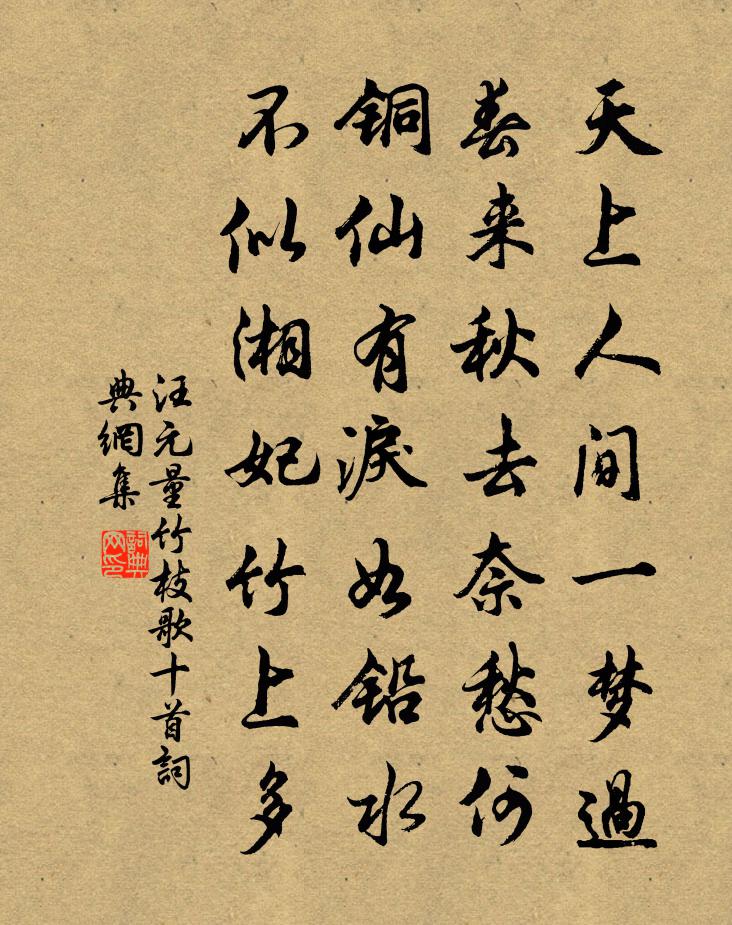 天上人间一梦過
春来秋去奈愁何
铜仙有淚如铅水
不似湘妃竹上多
汪元量竹枝歌十首詞
典網集
詞典网印